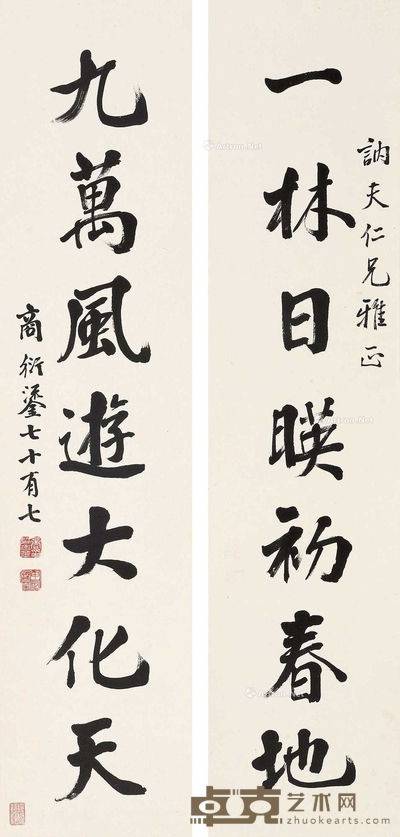 訥夫仁兄雅正
一林日暎初春地
九萬風遊大化天
商衍鎏七十有七
Artron.Net
卓克艺术网
www.zhuokearts.com